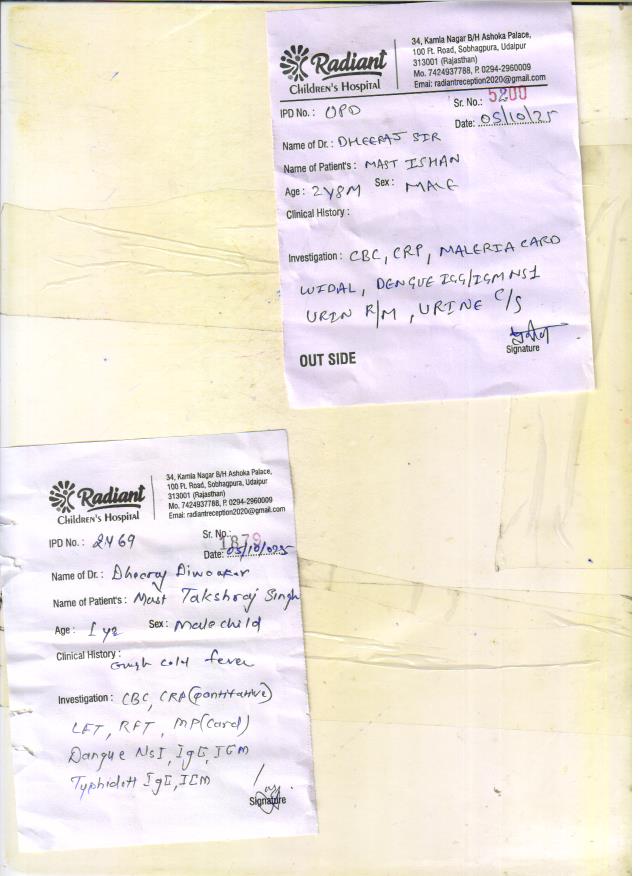 Radiant
Children's Hospital
34, Kamla Nagar B/H Ashoka Palace,
100 Ft. Road, Sobhagpura, Udaipur
313001 (Rajasthan)
Mo. 7424937788, P. 0294-2960009
Emai: radiantreception2020@gmail.com
IPD No.: OPD
Sr. No.: 5200
Date: 05/10/25
Name of Dr.: DHEERAJ SIR
Name of Patient's: MAST ISHAN
Age: 2Y8M Sex: MALE
Clinical History:
Investigation: CBC, CRP, MALERIA CARD
WIDAL, DENGUE IGG/IGM NS1
URIN R/M, URINE C/S
OUT SIDE
Signature
Radiant
Children's Hospital
34, Kamla Nagar B/H Ashoka Palace,
100 Ft. Road, Sobhagpura, Udaipur
313001 (Rajasthan)
Mo. 7424937788, P. 0294-2960009
Emai: radiantreception2020@gmail.com
IPD No.: 2469
Sr. No.: 1879
Date: 05/10/025
Name of Dr.: Dheeraj Diwakar
Name of Patient's: Mast Takshraj Singh
Age: 1 yr Sex: Male child
Clinical History: cough cold fever
Investigation: CBC, CRP (qantitative)
LFT, RFT, MP (Card)
Dangue NsI, IgG, IGM
Typhidott IgG, IGM
Signature